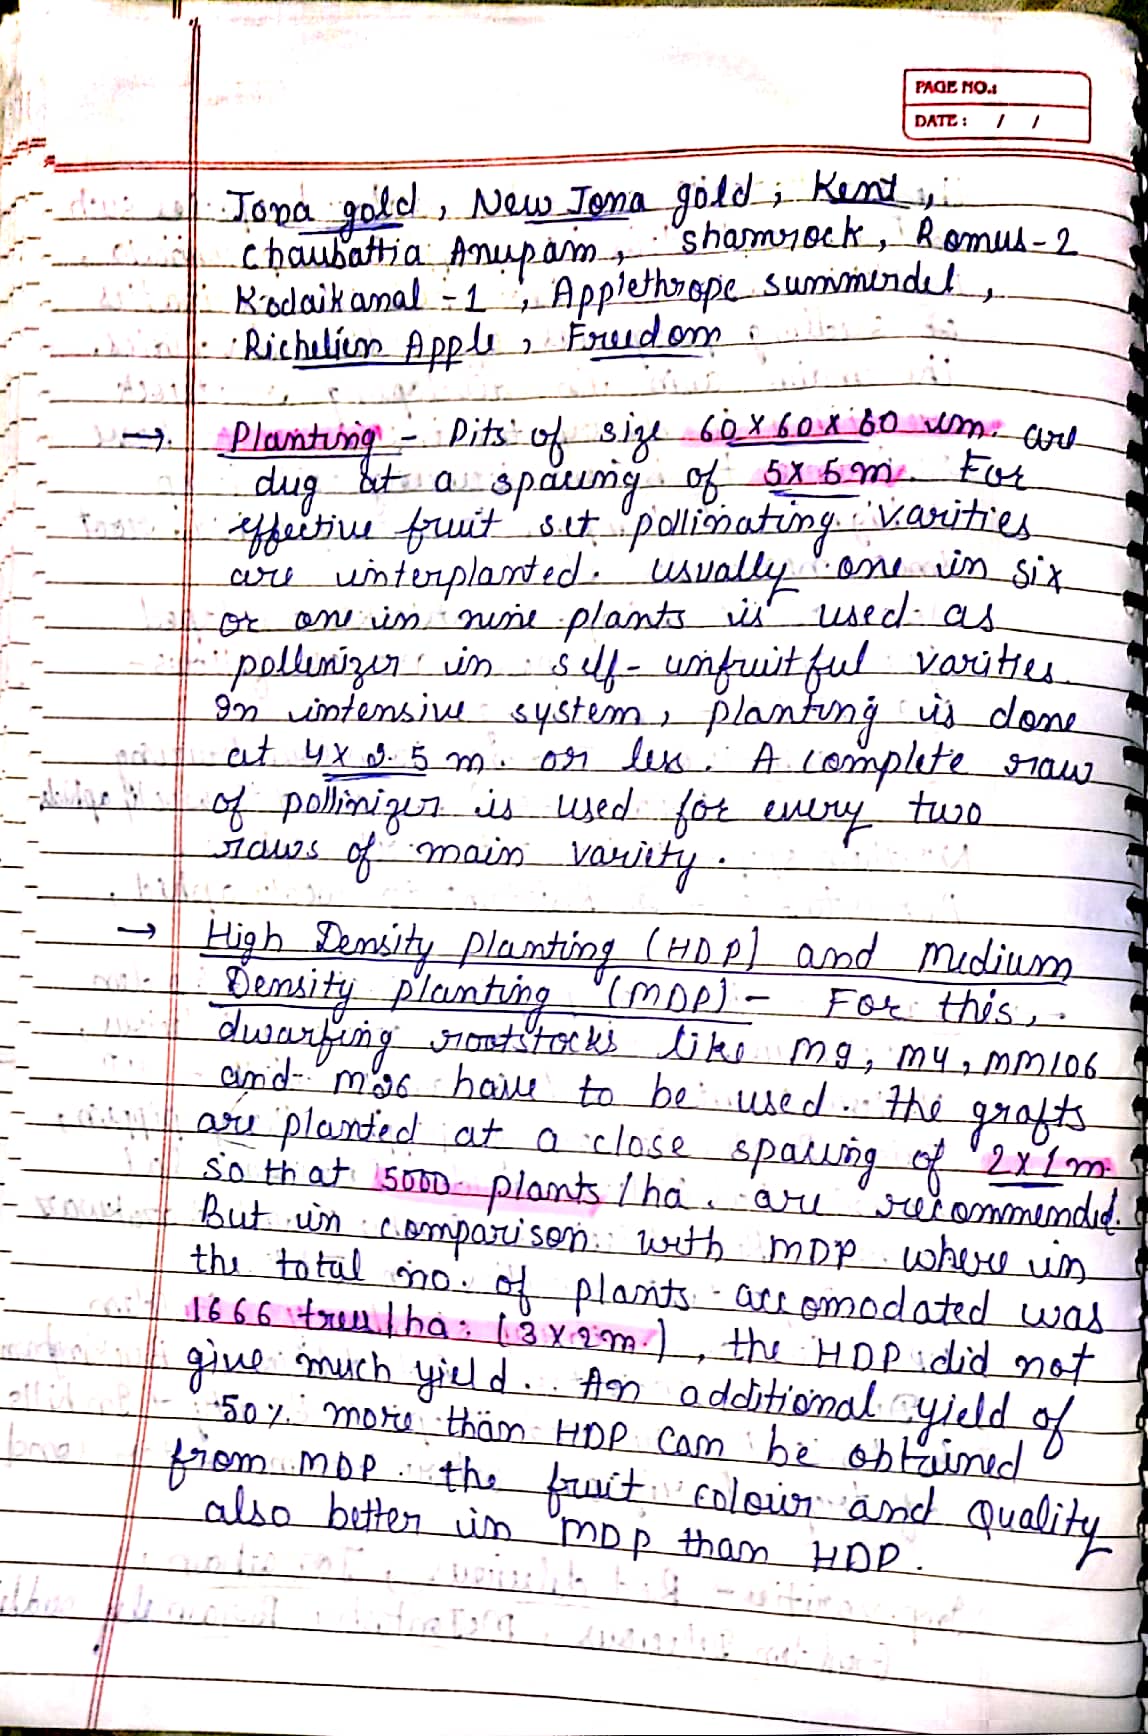 PAGE NO.:
DATE: / /
Jona gold, New Jona gold, Kent,
Chaubattia Anupam, Shamrock, Romus-2
Kodaikanal-1, Applethrope summerdel,
Richelieu Apple, Freedom.
→ Planting - Pits of size 60x60x60 cm. are
dug at a spacing of 5x5m. For
effective fruit set pollinating varities
are interplanted. usually one in six
or one in nine plants is used as
pollenizer in self-unfruitful varities.
In intensive system, planting is done
at 4x2.5 m. or less. A complete raw
of pollinizer is used for every two
raws of main variety.
→ High Density planting (HDP) and medium
Density planting (MDP) - For this,
dwarfing rootstocks like M9, M4, MM106
and M26 have to be used. the grafts
are planted at a close spacing of 2x1m
so that 5000 plants/ha. are recommended.
But in comparison with MDP where in
the total no. of plants accomodated was
1666 trees/ha. (3x2m.), the HDP did not
give much yield. An additional yield of
50% more than HDP can be obtained
from MDP. the fruit colour and Quality
also better in MDP than HDP.